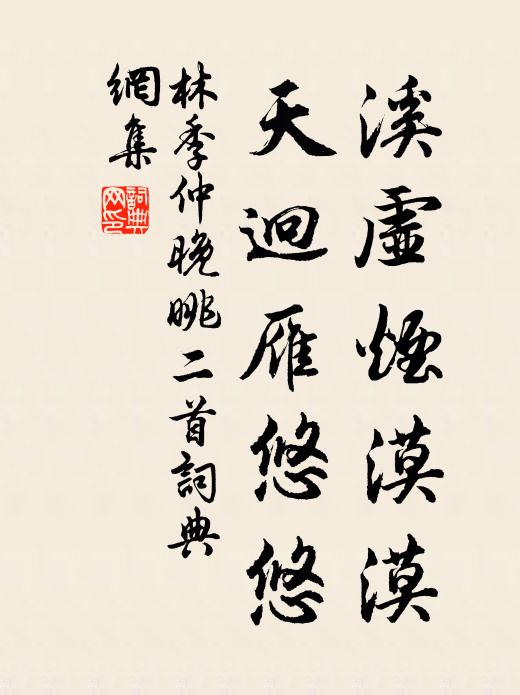 溪虛煙漠漠
天迥雁悠悠
林季仲晚眺二首詞典
網集
詞典
网印